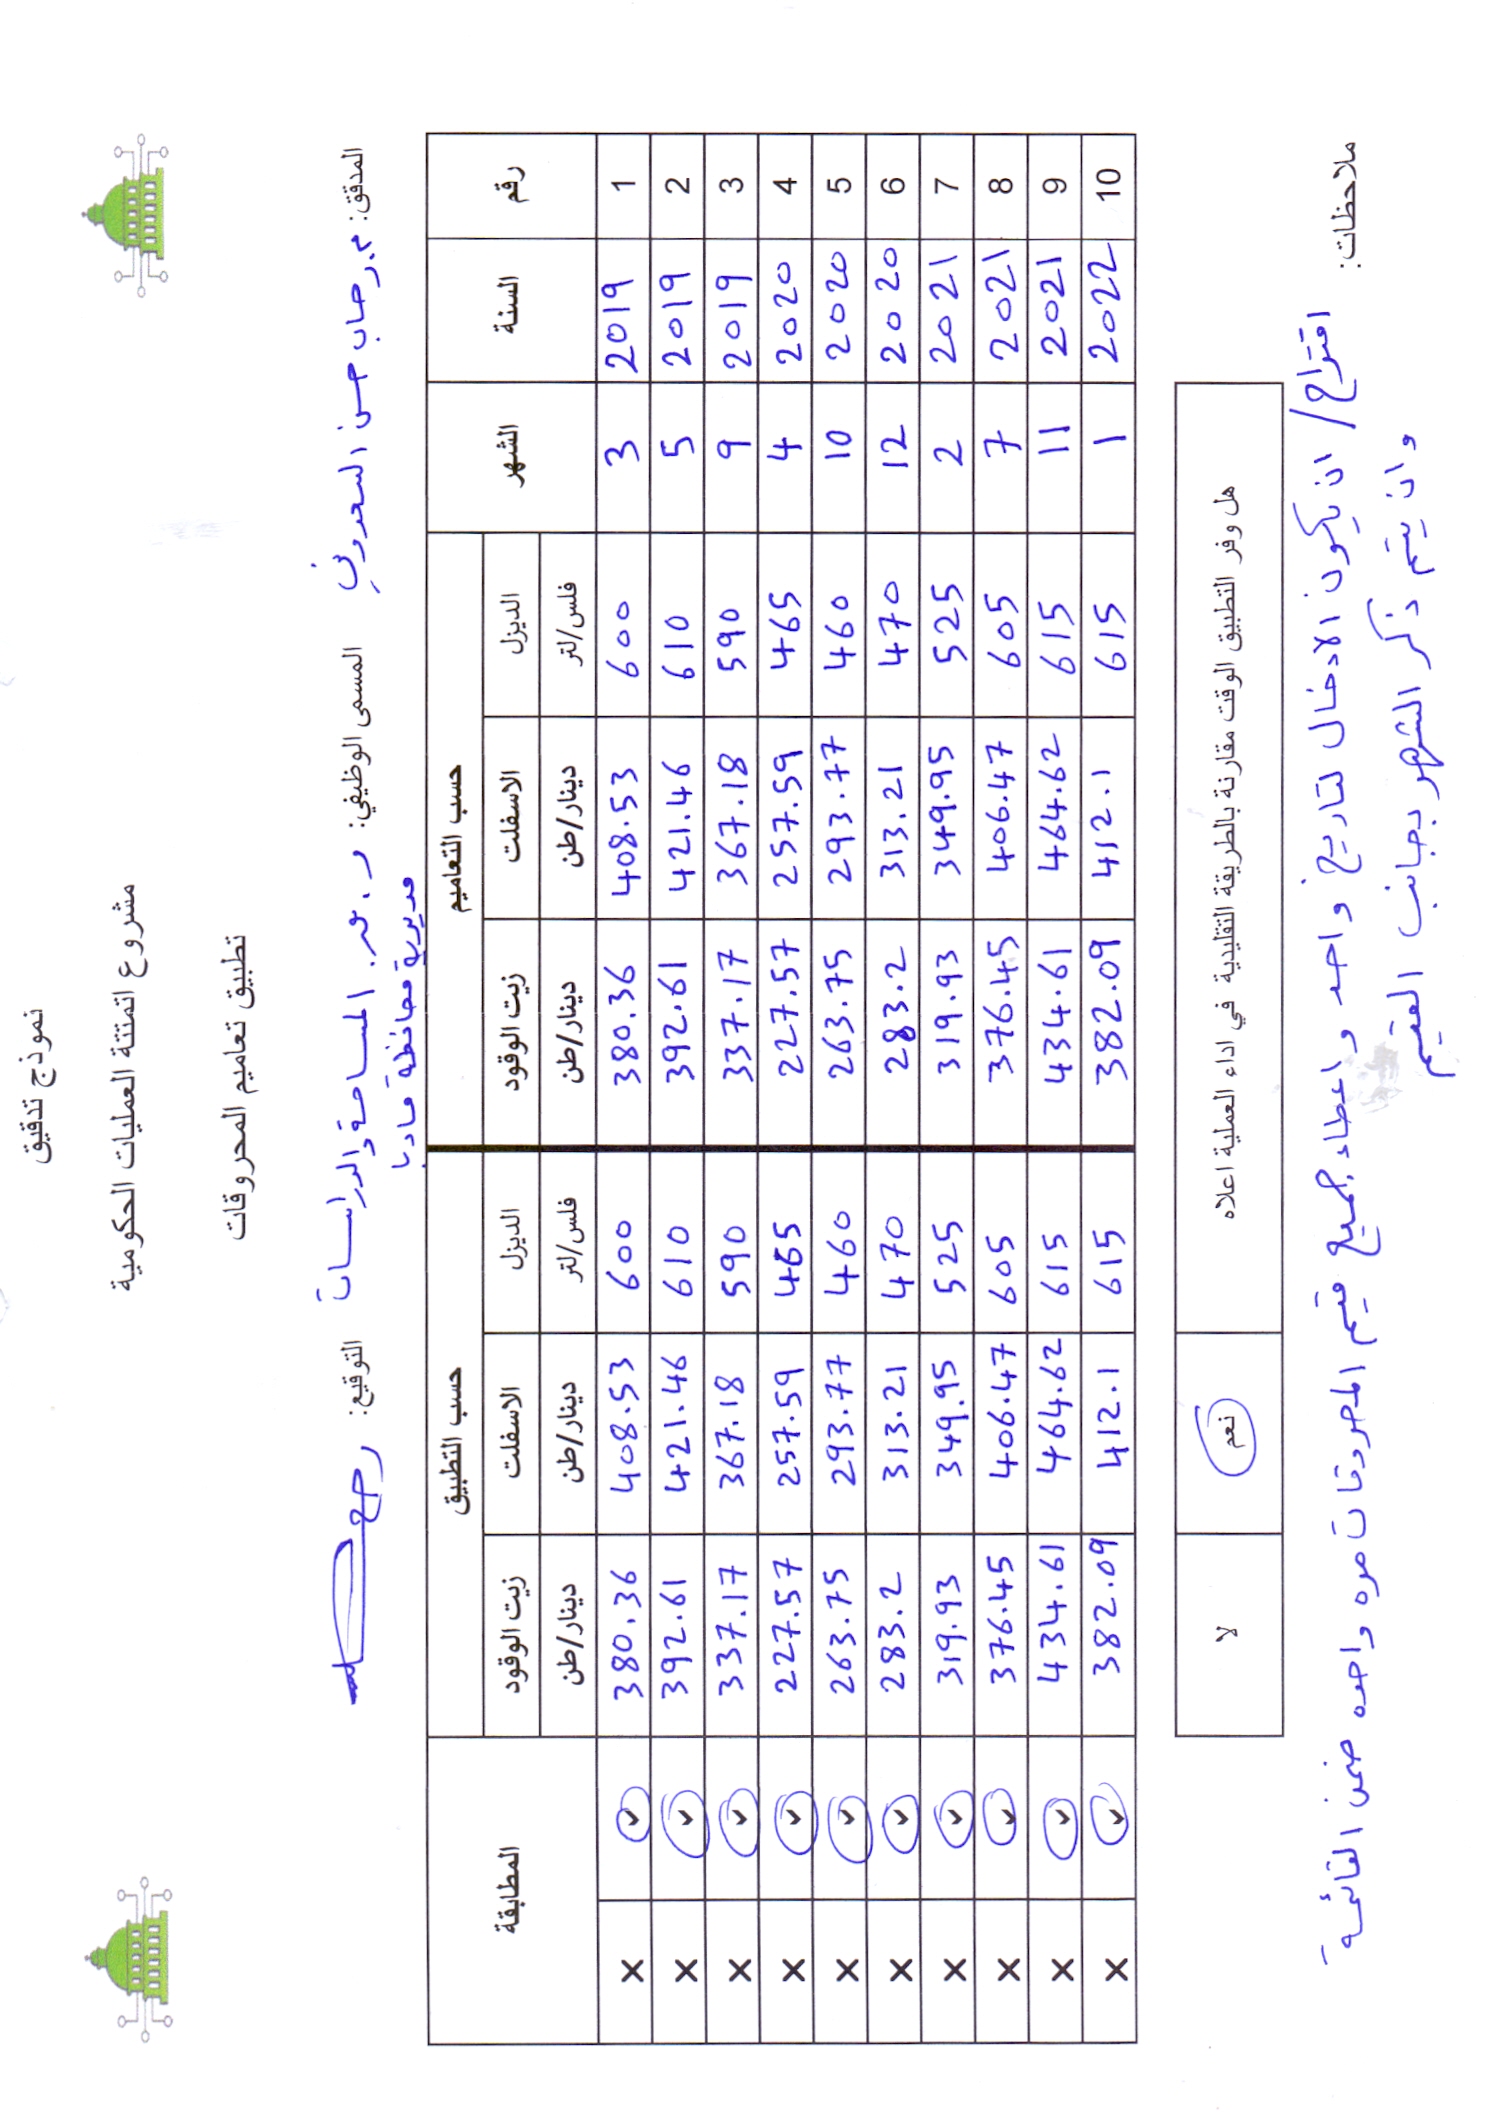 نموذج تدقيق
مشروع اتمتة العمليات الحكومية
تطبيق تعاميم المحروقات
المدقق: م. رحاب حسن السعدوني المسمى الوظيفي: ر. المساحة والدراسات التوقيع:
مديرية محافظة مادبا
رقم السنة الشهر حسب التعاميم حسب التطبيق المطابقة
الديزل الاسفلت زيت الوقود الديزل الاسفلت زيت الوقود
فلس/لتر دينار/طن دينار/طن فلس/لتر دينار/طن دينار/طن
1 2019 3 600 408.53 380.36 600 408.53 380.36 ✓ ×
2 2019 5 610 421.46 392.61 610 421.46 392.61 ✓ ×
3 2019 9 590 367.18 337.17 590 367.18 337.17 ✓ ×
4 2020 4 465 257.59 227.57 465 257.59 227.57 ✓ ×
5 2020 10 460 293.77 263.75 460 293.77 263.75 ✓ ×
6 2020 12 470 313.21 283.2 470 313.21 283.2 ✓ ×
7 2021 2 525 349.95 319.93 525 349.95 319.93 ✓ ×
8 2021 7 605 406.47 376.45 605 406.47 376.45 ✓ ×
9 2021 11 615 464.62 434.61 615 464.62 434.61 ✓ ×
10 2022 1 615 412.1 382.09 615 412.1 382.09 ✓ ×
هل وفر التطبيق الوقت مقارنة بالطريقة التقليدية في اداء العملية اعلاه نعم لا
ملاحظات:
اقتراح / ان يكون الادخال لتاريخ واحد واعطاء جميع قيم المحروقات مره واحده ضمن القائمة
وان يتم ذكر الشهر بجانب القيم